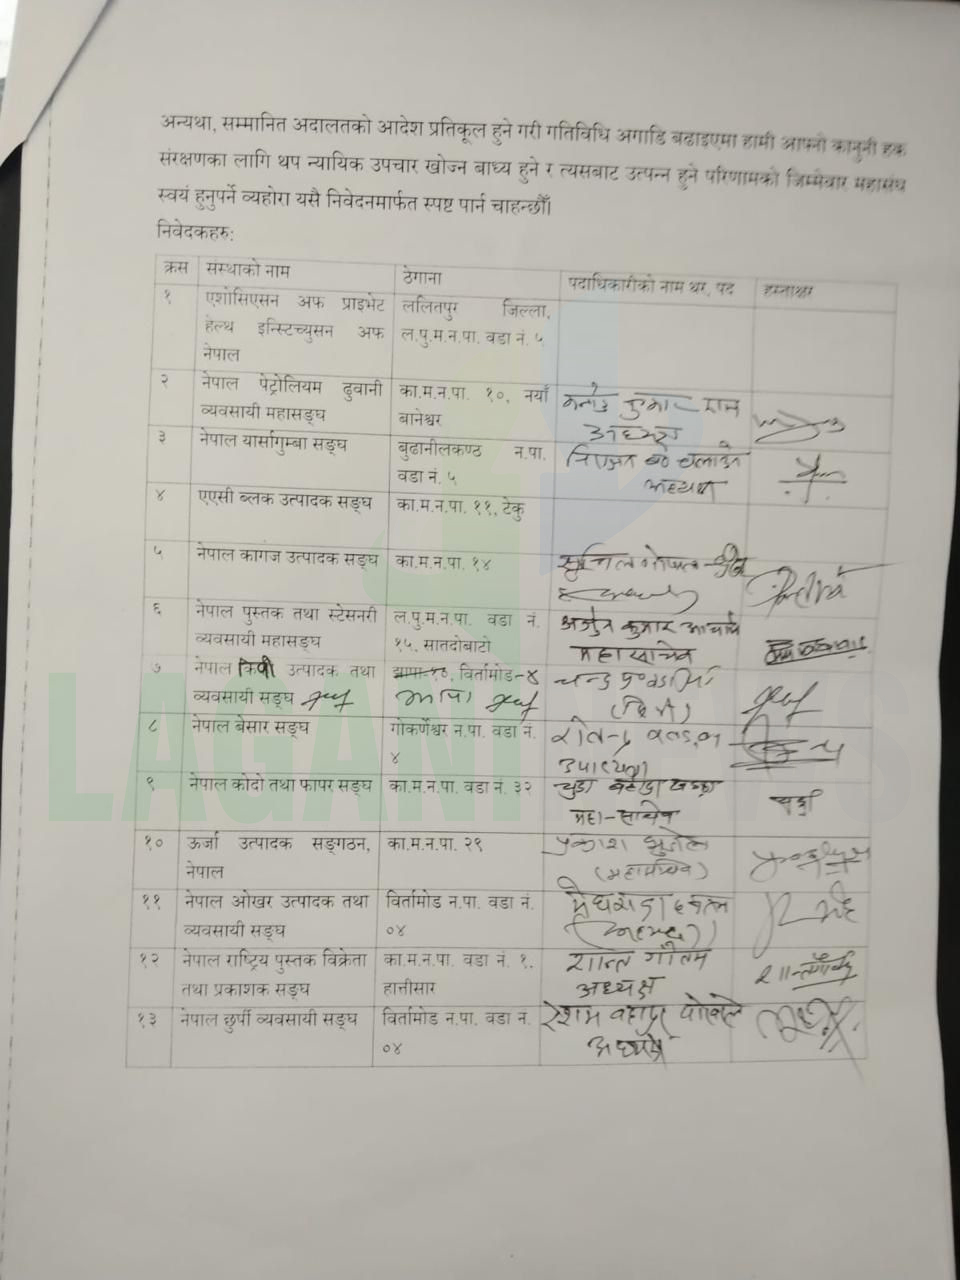 अन्यथा, सम्मानित अदालतको आदेश प्रतिकूल हुने गरी गतिविधि अगाडि बढाइएमा हामी आफ्नो कानुनी हक
संरक्षणका लागि थप न्यायिक उपचार खोज्न बाध्य हुने र त्यसबाट उत्पन्न हुने परिणामको जिम्मेवार महासंघ
स्वयं हुनुपर्ने व्यहोरा यसै निवेदनमार्फत स्पष्ट पार्न चाहन्छौँ।
निवेदकहरु:
क्रस संस्थाको नाम ठेगाना पदाधिकारीको नाम थर, पद हस्ताक्षर
१ एशोसिएसन अफ प्राइभेट ललितपुर जिल्ला,
हेल्थ इन्स्टिच्युसन अफ ल.पु.म.न.पा. वडा नं. ५
नेपाल
२ नेपाल पेट्रोलियम ढुवानी का.म.न.पा. १०, नयाँ कुमार
व्यवसायी महासङ्घ बानेश्वर अध्यक्ष
३ नेपाल यार्सागुम्बा सङ्घ बुढानीलकण्ठ न.पा.
वडा नं. ५ अध्यक्ष
४ एएसी ब्लक उत्पादक सङ्घ का.म.न.पा. ११, टेकु
५ नेपाल कागज उत्पादक सङ्घ का.म.न.पा. १४
६ नेपाल पुस्तक तथा स्टेसनरी ल.पु.म.न.पा. वडा नं. अर्जुन कुमार आचार्य
व्यवसायी महासङ्घ १५, सातदोबाटो महासचिव
७ नेपाल किवी उत्पादक तथा झापा-१०, विर्तामोड-४
व्यवसायी सङ्घ झापा
८ नेपाल बेसार सङ्घ गोकर्णेश्वर न.पा. वडा नं.
४ उपाध्यक्ष
९ नेपाल कोदो तथा फापर सङ्घ का.म.न.पा. वडा नं. ३२
महा-सचिव
१० ऊर्जा उत्पादक सङ्गठन, का.म.न.पा. २९ प्रकाश
नेपाल (महासचिव)
११ नेपाल ओखर उत्पादक तथा विर्तामोड न.पा. वडा नं.
व्यवसायी सङ्घ ०४
१२ नेपाल राष्ट्रिय पुस्तक विक्रेता का.म.न.पा. वडा नं. १, गौतम
तथा प्रकाशक सङ्घ हात्तीसार अध्यक्ष
१३ नेपाल छुर्पी व्यवसायी सङ्घ विर्तामोड न.पा. वडा नं. रेशम बहादुर पोखरेल
०४ अध्यक्ष